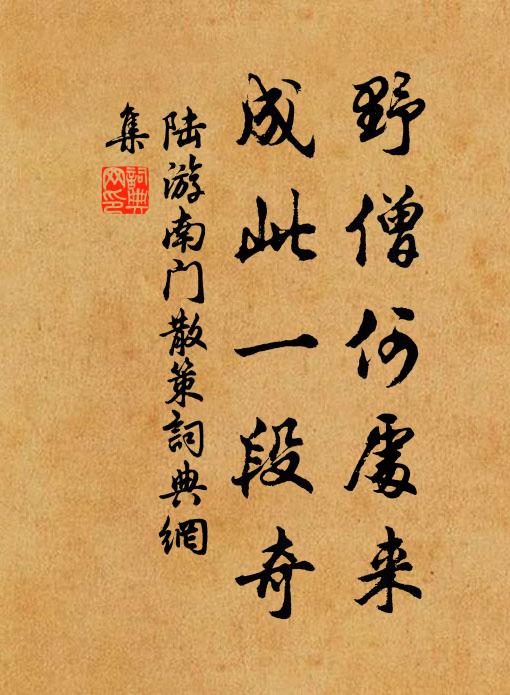 野僧何處来
成此一段奇
陆游南门散策詞典網
集
詞典
网印